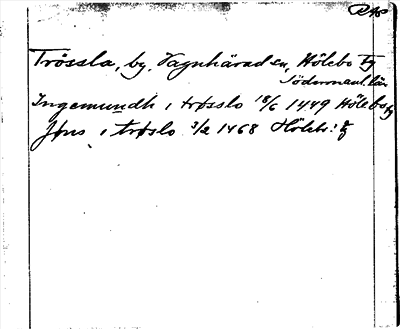 Trössla, by, Vagnhärad sn, Hölebo
Södermanl. län
Ingemundh i trøsslo 18/6 1449 Hölebo
Jøns i trøslo 3/2 1468 Hölebo